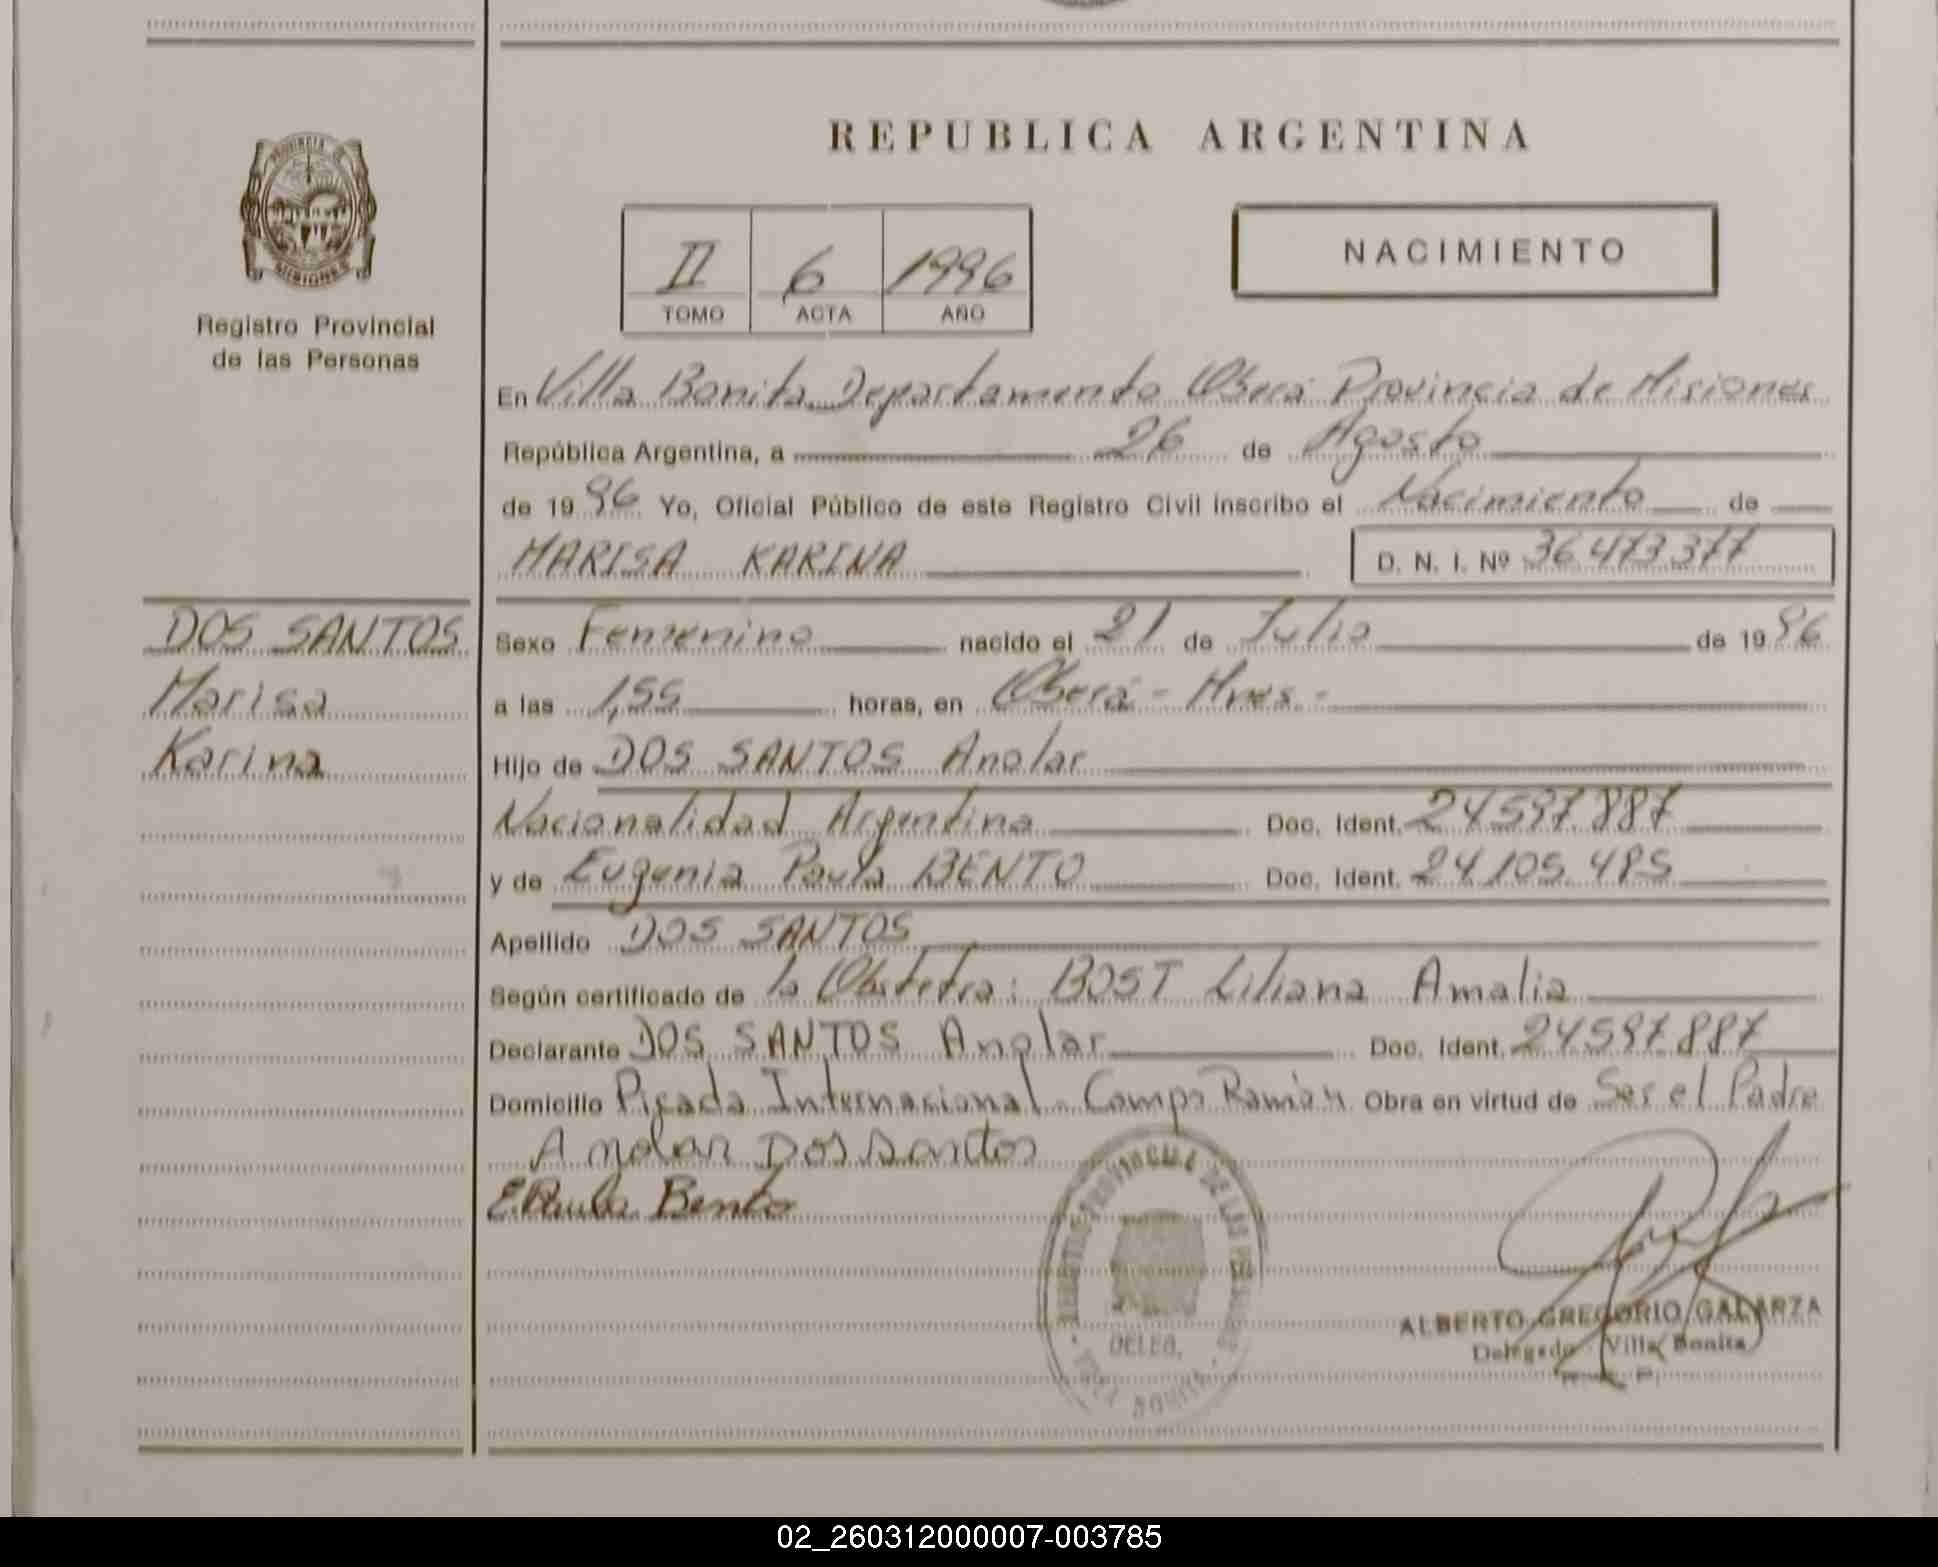 REPUBLICA ARGENTINA
PROVINCIA DE MISIONES
Registro Provincial
de las Personas
II 6 1996
TOMO ACTA AÑO
NACIMIENTO
En Villa Bonita Departamento Oberá Provincia de Misiones
República Argentina, a 26 de Agosto
de 1996 Yo, Oficial Público de este Registro Civil inscribo el Nacimiento de
MARISA KARINA D. N. I. Nº 36.473.377
DOS SANTOS
Marisa
Karina
Sexo Femenino nacido el 21 de Julio de 1996
a las 1,55 horas, en Oberá - Mnes.-
Hijo de DOS SANTOS Anolar
Nacionalidad Argentina Doc. Ident. 24.597.887
y de Eugenia Paula BENTO Doc. Ident. 24.105.485
Apellido DOS SANTOS
Según certificado de la Obstetra: BOST Liliana Amalia
Declarante DOS SANTOS Anolar Doc. Ident. 24.597.887
Domicilio Picada Internacional - Campo Ramón Obra en virtud de Ser el Padre
Anolar Dos santos
E. Paula Bento
REGISTRO PROVINCIAL DE LAS PERSONAS
DELEG.
VILLA BONITA
ALBERTO GREGORIO GALARZA
Delegado Villa Bonita
02_260312000007-003785